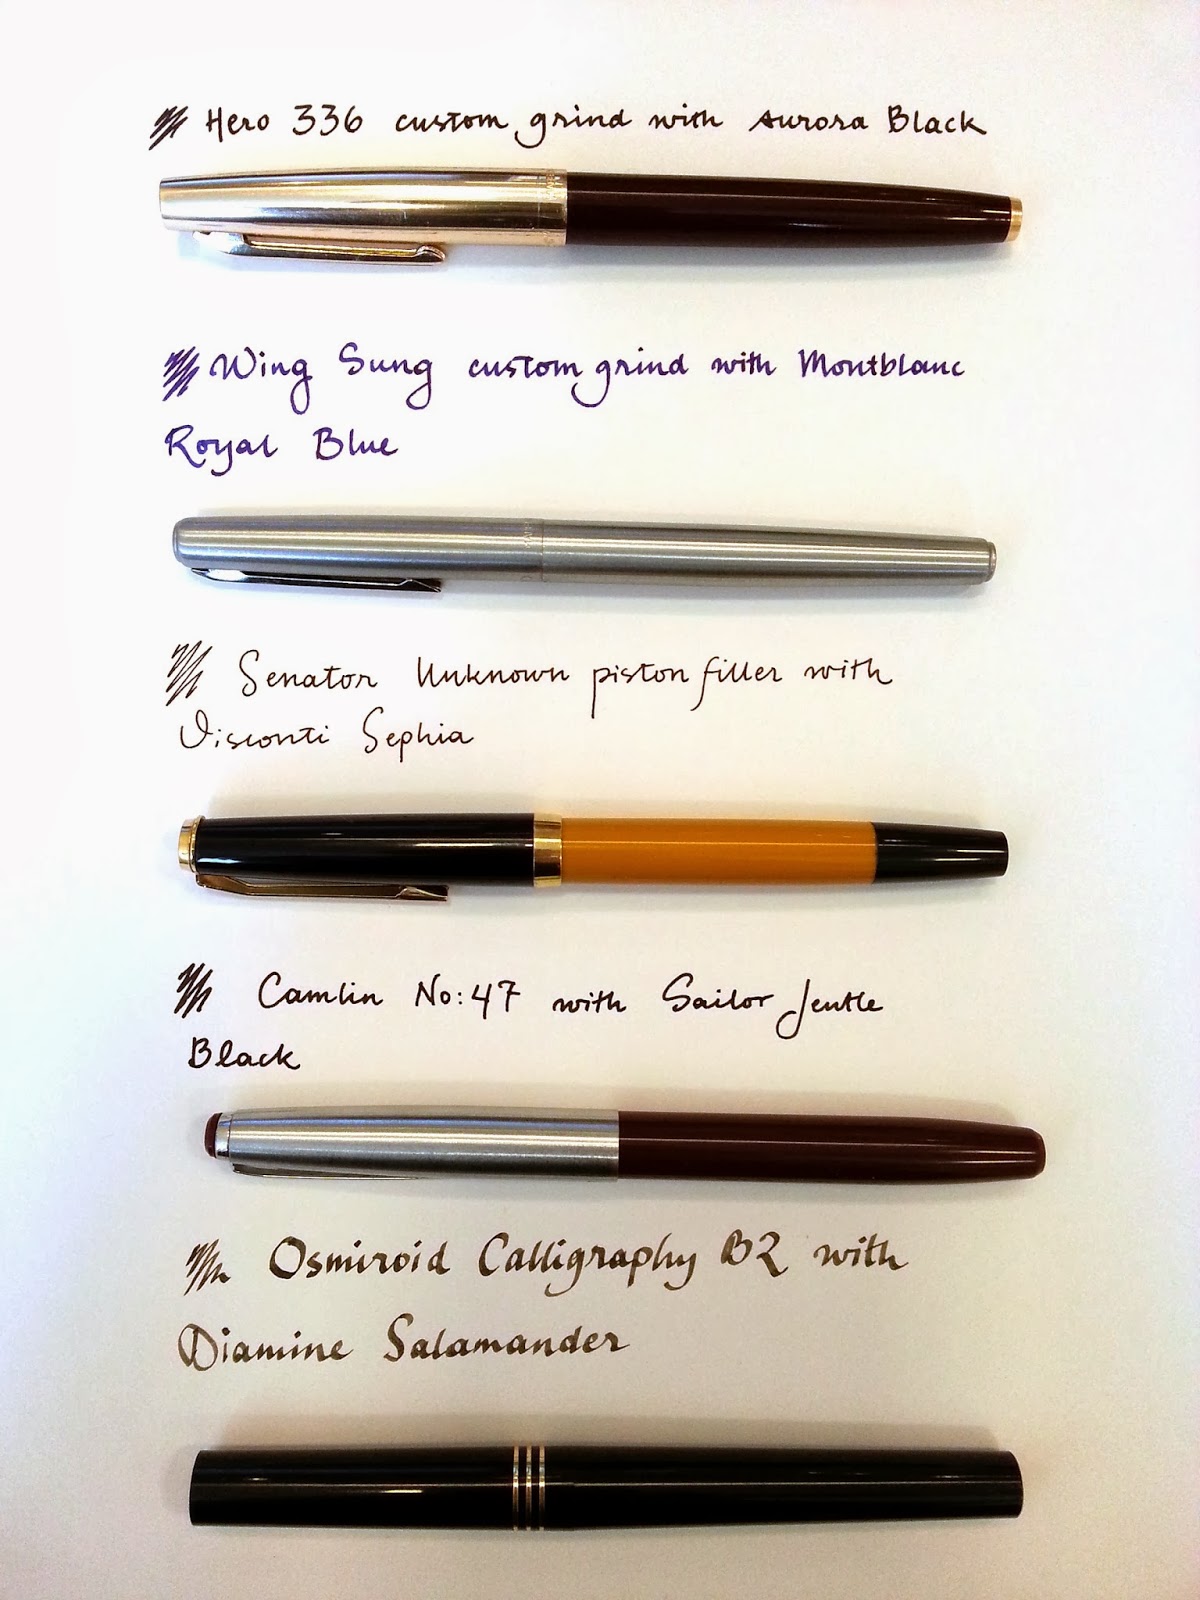 Hero 336 custom grind with Aurora Black
Wing Sung custom grind with Montblanc
Royal Blue
Senator Unknown piston filler with
Visconti Sephia
Camlin No:47 with Sailor Jentle
Black
Osmiroid Calligraphy B2 with
Diamine Salamander